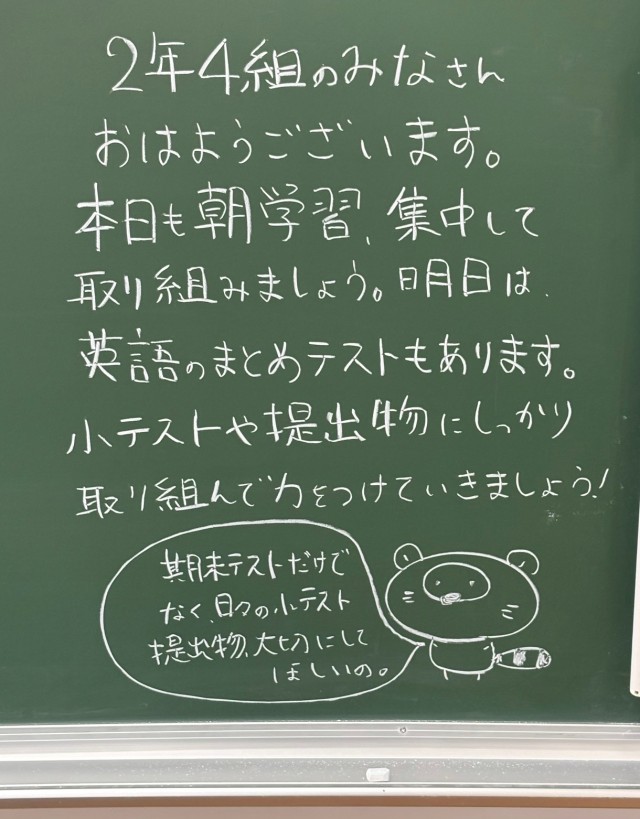 2年4組のみなさん
おはようございます。
本日も朝学習、集中して
取り組みましょう。明日は、
英語のまとめテストもあります。
小テストや提出物にしっかり
取り組んで力をつけていきましょう!
期末テストだけで
なく、日々の小テスト
提出物、大切にして
ほしいの。